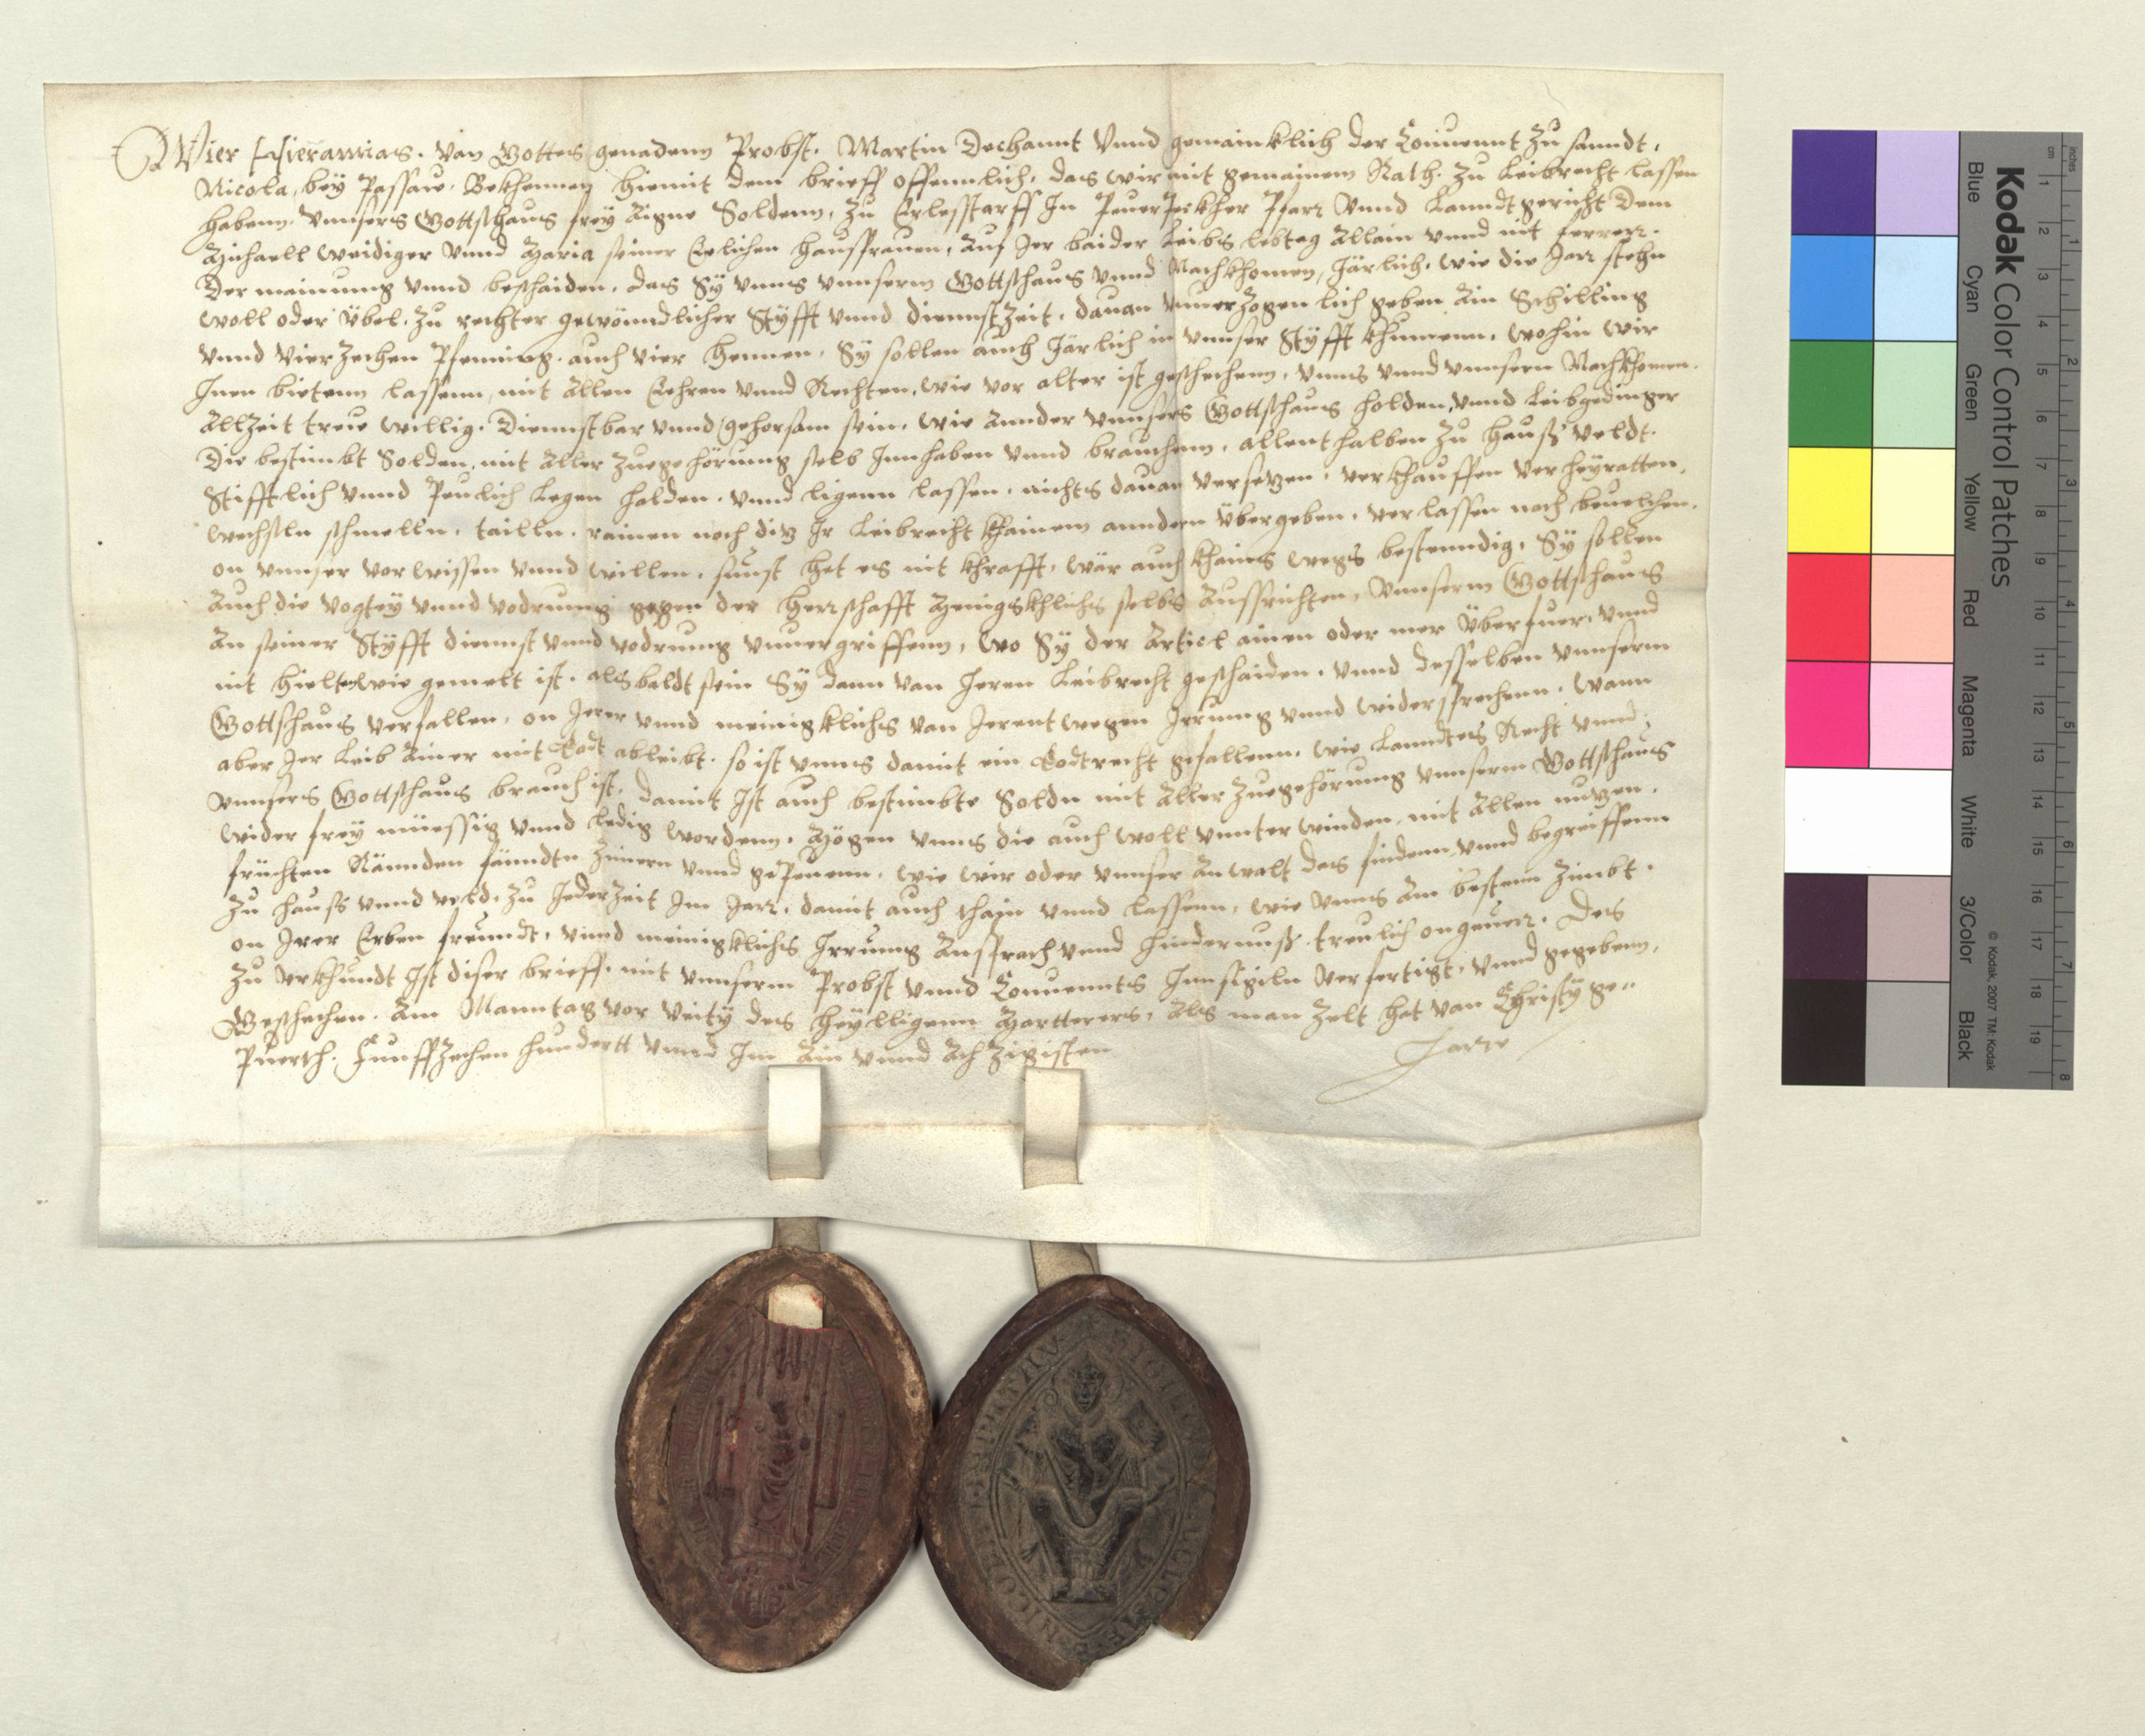 Wier Hieramias. Van Gottes genadenn Probst. Martin Dechannt Vnnd gemainklich der Conuennt Zu sanndt.
Nicola, bey Passaw. Bekhennen hiemit dem brieff offennlich. das wir mit gemainem Rath. Zu Leibrecht lassen
habenn. Vnnsers Gottshaus frey Aigne Soldenn, Zu Erlesstarff In Peuer Pfarr Vnnd Lanndtgericht Dem
Michaell Weidiger Vnnd Maria seiner Eelichen hausfrauen, Auf Jer baider Leibs lebtag Allain vnnd nit ferrerr.
Der mainung vnnd beschaiden. das Sy vnns vnnserm Gottshaus vnnd Nachkhomen, Järlich. wie die Jarr stehn
woll oder Übel. Zu rechter gewönndlicher Styfft vnnd diennstzeit. dauan vnuerzogenlich geben Ain Schilling
vnnd Vierzechen Pfenning. auch Vier hennen. Sy sollen auch Järlich in vnnser Styfft khumenn. wohin wir
Inen bietenn lassenn, mit Allen Eehren vnnd Rechten. wie vor alter ist geschechenn. vnns vnnd vnnsern Nachkhomen.
Allzeit treue willig. Diennstbar vnnd gehorsam sein. wie Annder vnnsers Gottshaus holden, vnnd Leibgedinger
Die bestimbt Solden. mit Aller Zuegehörung selb Innhaben vnnd brauchenn. allenthalben Zu hauß veldt.
Stifftlich vnnd Peulich Legen halden. vnnd ligenn lassen. nichts dauan versezen. verkhauffen verheyratten.
wechsln schmelln. tailln. rainen noch diz Ir Leibrecht khainem anndern Übergeben. verlassen noch beuelchen.
on vnnser vorwissen vnnd willen. sunst het es nit khrafft. wär auch khains wegs bestenndig. Sy sollen
Auch die Vogtey vnnd vodrung gegen der herrschafft Menigkhlichs selbs Aussrichten. Vnnserm Gottshaus
An seiner Styfft diennst vnnd vodrung vnuergriffenn. Wo Sy der Articl ainen oder mer Überfuer. vnnd
nit hielten wie gemelt ist. als baldt sein Sy dann van Jeren Leibrecht geschaiden. vnnd desselben vnnserm
Gottshaus verfallen. on Jerer vnnd meinigklichs van Jerentwegen Irrung vnnd widersprechenn. wann
aber Jer Leib Ainer mit Todt ableibt. so ist vnns damit ein Todtrecht gefallenn. wie Lanndtes Recht vnnd.
vnnsers Gottshaus brauch ist. damit Ist auch bestimbte Soldn mit Aller Zuegehörung vnnserm Gottshaus
wider frey müessig vnnd Ledig wordenn. Mögen vnns die auch woll vnnterwinden. mit Allen nuzen.
früchten Zimern vnnd gepeuenn. wie wir oder vnnser Anwalt das findenn vnnd begreiffenn
Zu hauß vnnd veld. Zu Jederzeit Im Jarr. damit auch thain vnnd lassenn. wie vnns Am bestenn Zimbt.
on Jrer Erben freundt. vnnd meinigklichs Irrung Ansprach vnnd hindernuß treulich ongeuerr. Des
Zu vrkhundt Ist diser brieff. mit vnnserm Probst vnnd Conuennts Innsigln verfertigt. vnnd gegebenn.
Geschechen. Am Manntag vor Veity des heylligenn Martterers. Als man Zelt hat van Christy ge=
Puerth. Funffzechen hundertt vnnd Im Ain vnnd Achzigisten Jarre
Kodak Color Control Patches
© Kodak, 2007 TM: Kodak
Blue Cyan Green Yellow Red Magenta White 3/Color Black
cm 1 2 3 4 5 6 7 8 9 10 11 12 13 14 15 16 17 18 19
inches 1 2 3 4 5 6 7 8